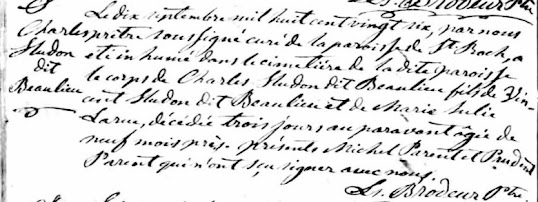 Ls. Brodeur Ptre
Le dix septembre mil huit cent vingt six, par nous
Charles prètre soussigné curé de la paroisse de St. Roch, a
Hudon eté inhumé dans le cimetière de la dite paroisse
dit le corps de Charles Hudon dit Beaulieu fils de Vin-
Beaulieu cent Hudon dit Beaulieu et de Marie Julie
décédée trois jours au paravant âgée de
neuf mois près. présents Michel Parent et Prudent
Parent qui n'ont sçu signer avec nous.
Ls. Brodeur Ptre.